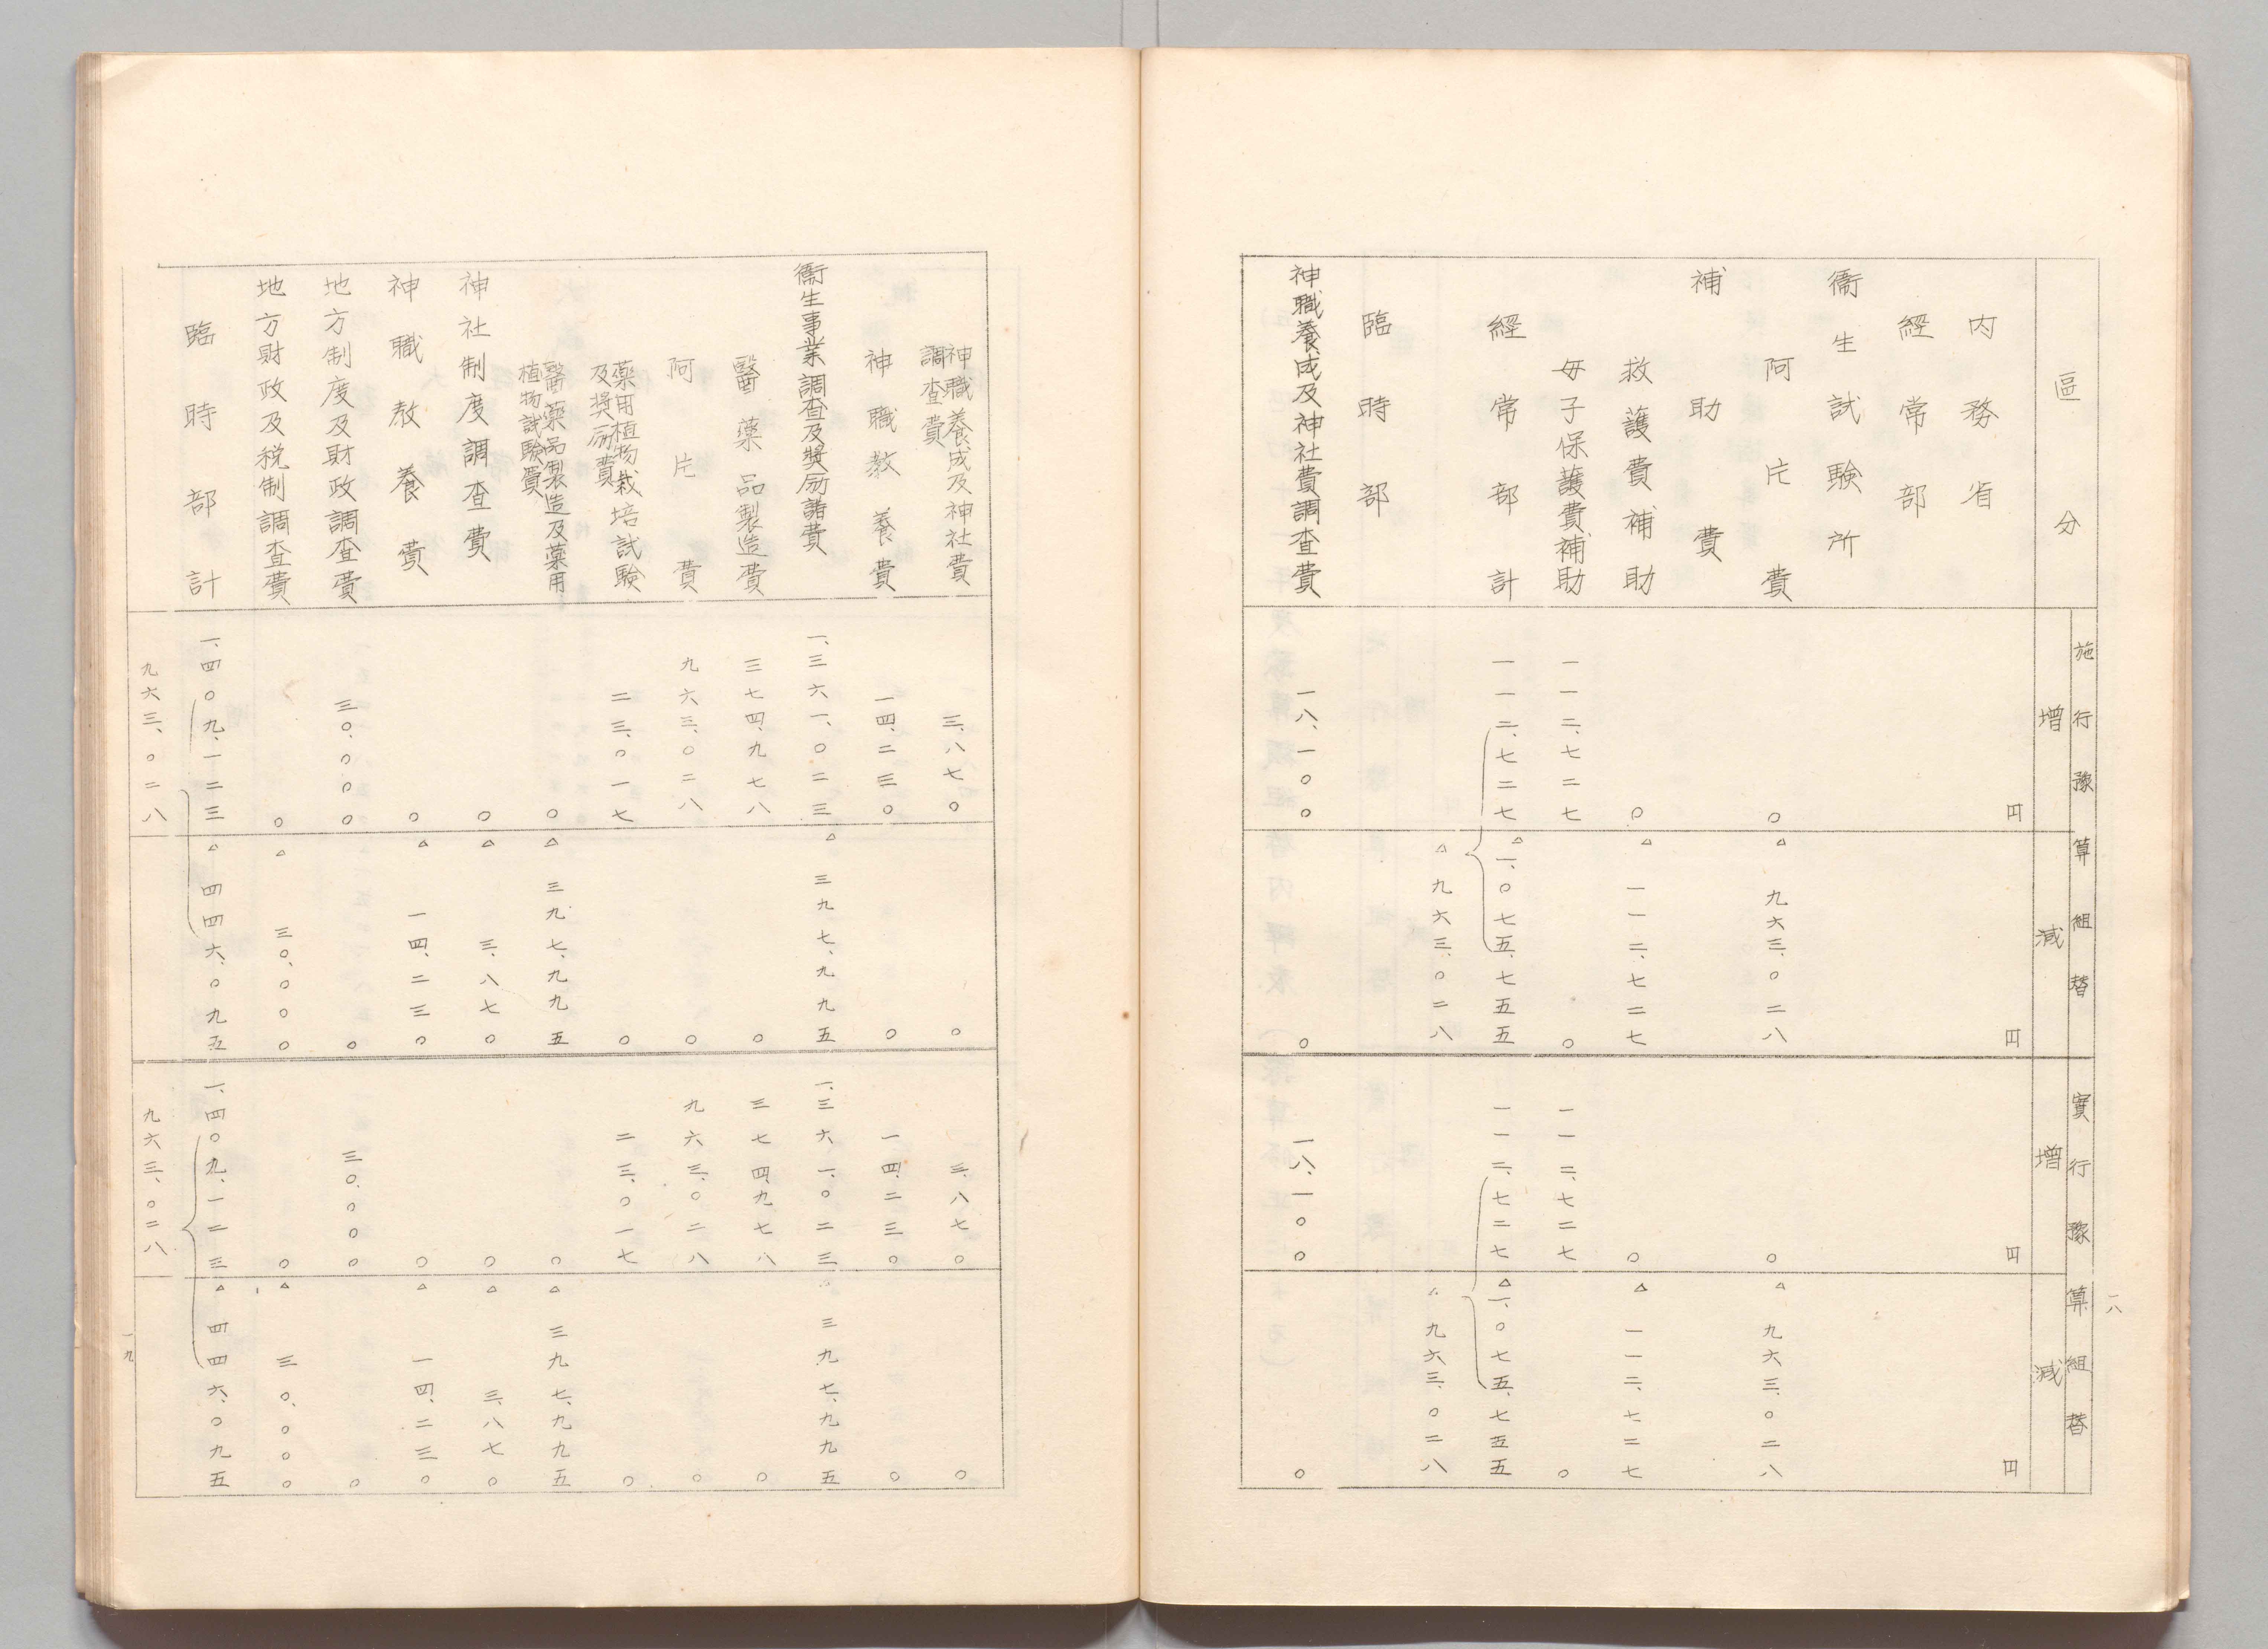 一八
區分
施行豫算組替
增
減
實行豫算組替
增
減
內務省
円
円
円
円
經常部
衞生試驗所
阿片費
〇
△九六三、〇二八
〇
△九六三、〇二八
補助費
救護費補助
〇
△一一二、七二七
〇
△一一二、七二七
母子保護費補助
一一二、七二七
〇
一一二、七二七
〇
經常部計
一一二、七二七
△一、〇七五、七五五
一一二、七二七
△一、〇七五、七五五
△九六三、〇二八
△九六三、〇二八
臨時部
神職養成及神社費調查費
一八、一〇〇
〇
一八、一〇〇
〇
神職養成及神社費
調查費
三、八七〇
〇
三、八七〇
〇
神職教養費
一四、二三〇
〇
一四、二三〇
〇
衞生事業調查及奬励諸費
一、三六一、〇二三
△三九七、九九五
一、三六一、〇二三
△三九七、九九五
醫藥品製造費
三七四、九七八
〇
三七四、九七八
〇
阿片費
九六三、〇二八
〇
九六三、〇二八
〇
藥用植物栽培試驗
及奬励費
二三、〇一七
〇
二三、〇一七
〇
醫藥品製造及藥用
植物試驗費
〇
△三九七、九九五
〇
△三九七、九九五
神社制度調查費
〇
△三、八七〇
〇
△三、八七〇
神職教養費
〇
△一四、二三〇
〇
△一四、二三〇
地方制度及財政調查費
三〇、〇〇〇
〇
三〇、〇〇〇
〇
地方財政及税制調查費
〇
△三〇、〇〇〇
〇
△三〇、〇〇〇
臨時部計
一、四〇九、一二三
△四四六、〇九五
一、四〇九、一二三
△四四六、〇九五
九六三、〇二八
九六三、〇二八
一九